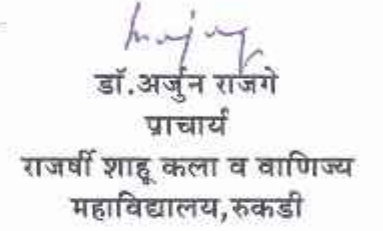 डॉ.अर्जुन राजगे
प्राचार्य
राजर्षी शाहू कला व वाणिज्य
महाविद्यालय,रुकडी